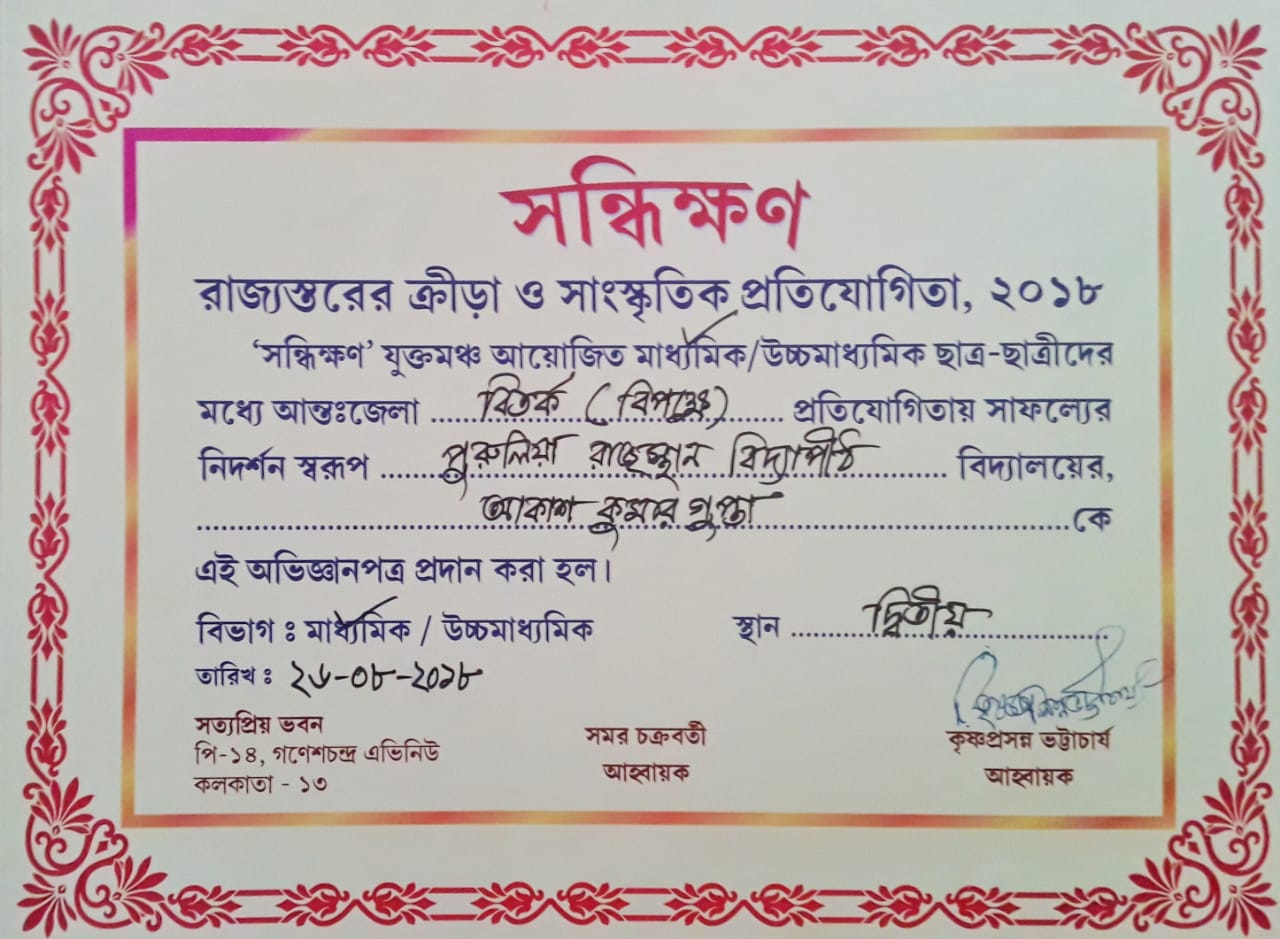 সন্ধিক্ষণ
রাজ্যস্তরের ক্রীড়া ও সাংস্কৃতিক প্রতিযোগিতা, ২০১৮
‘সন্ধিক্ষণ’ যুক্তমঞ্চ আয়োজিত মাধ্যমিক/উচ্চমাধ্যমিক ছাত্র-ছাত্রীদের
মধ্যে আন্তঃজেলা ..... বিতর্ক (বিপক্ষে) ..... প্রতিযোগিতায় সাফল্যের
নিদর্শন স্বরূপ ..... পুরুলিয়া রাজেস্থান বিদ্যাপীঠ ..... বিদ্যালয়ের,
..... আকাশ কুমার গুপ্তা ..... কে
এই অভিজ্ঞানপত্র প্রদান করা হল।
বিভাগ : মাধ্যমিক / উচ্চমাধ্যমিক স্থান ..... দ্বিতীয় .....
তারিখ : ২৬-০৮-২০১৮
সত্যপ্রিয় ভবন
পি-১৪, গণেশচন্দ্র এভিনিউ
কলকাতা - ১৩
সমর চক্রবর্তী
আহ্বায়ক
কৃষ্ণপ্রসন্ন ভট্টাচার্য
আহ্বায়ক